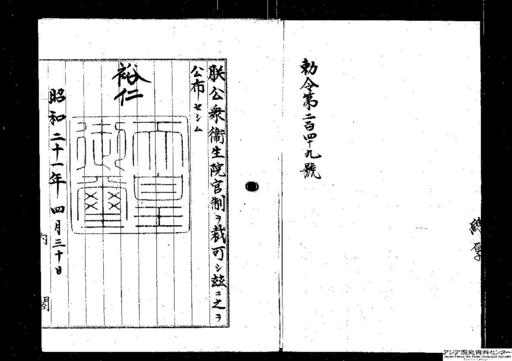 勅令第二百四十九號
朕公衆衞生院官制ヲ裁可シ玆ニ之ヲ
公布セシム
裕仁
天皇御璽
昭和二十一年四月三十日
内閣
アジア歴史資料センター